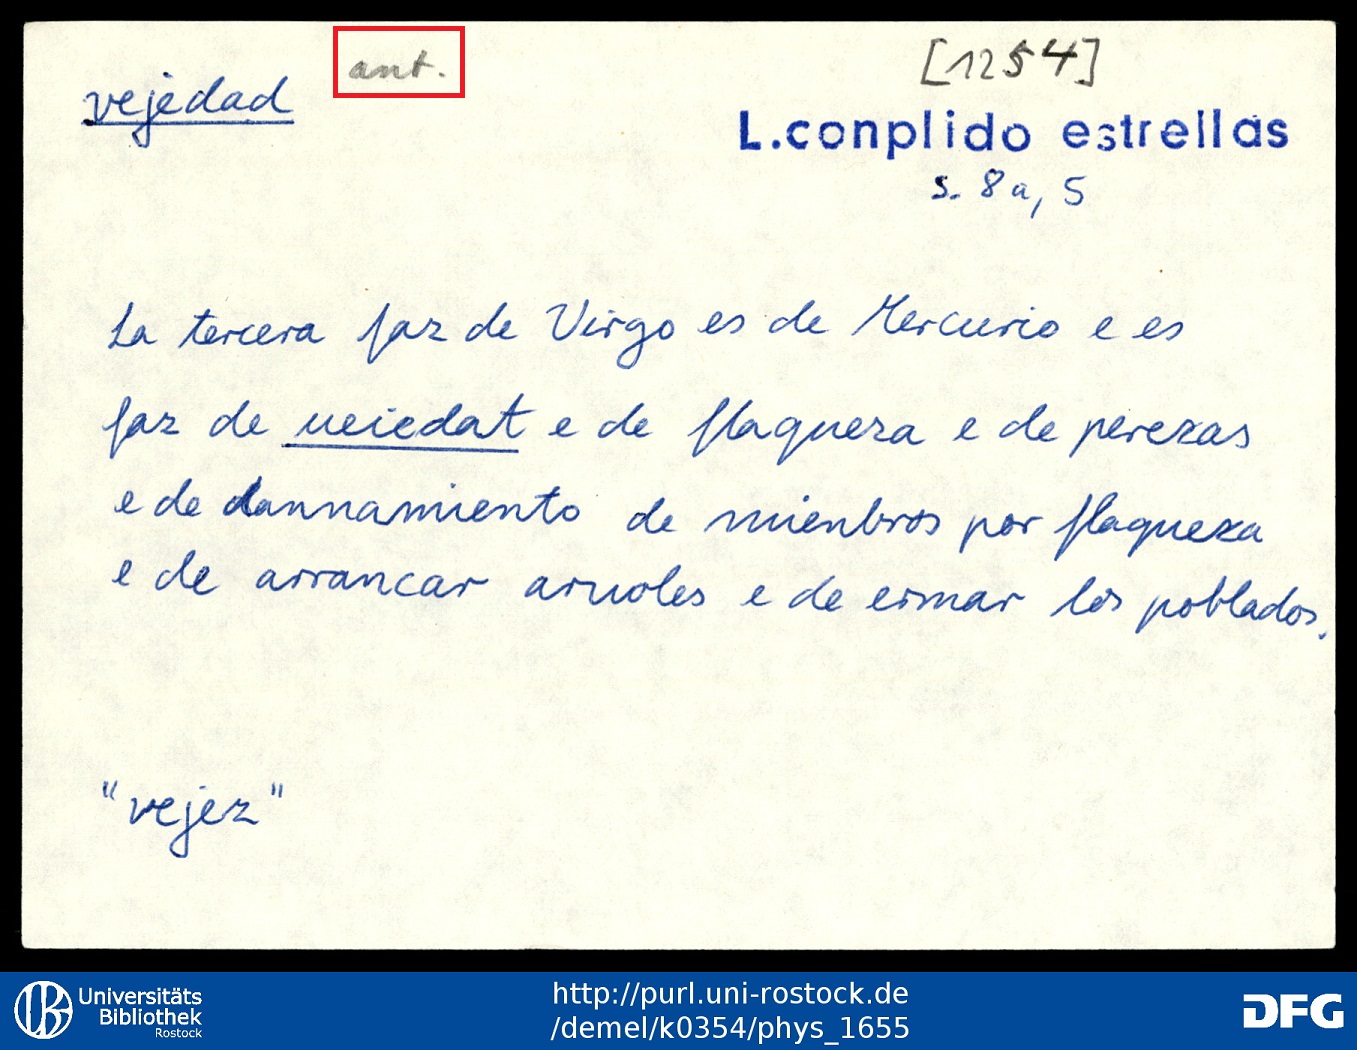 vejedad ant. [1254]
L.conplido estrellas
s. 8a, 5
La tercera faz de Virgo es de Mercurio e es
faz de ueiedat e de flaqueza e de perezas
e de dannamiento de mienbros por flaqueza
e de arrancar aruoles e de ermar los poblados.
"vejez"
Universitäts
Bibliothek
Rostock
http://purl.uni-rostock.de
/demel/k0354/phys_1655
DFG